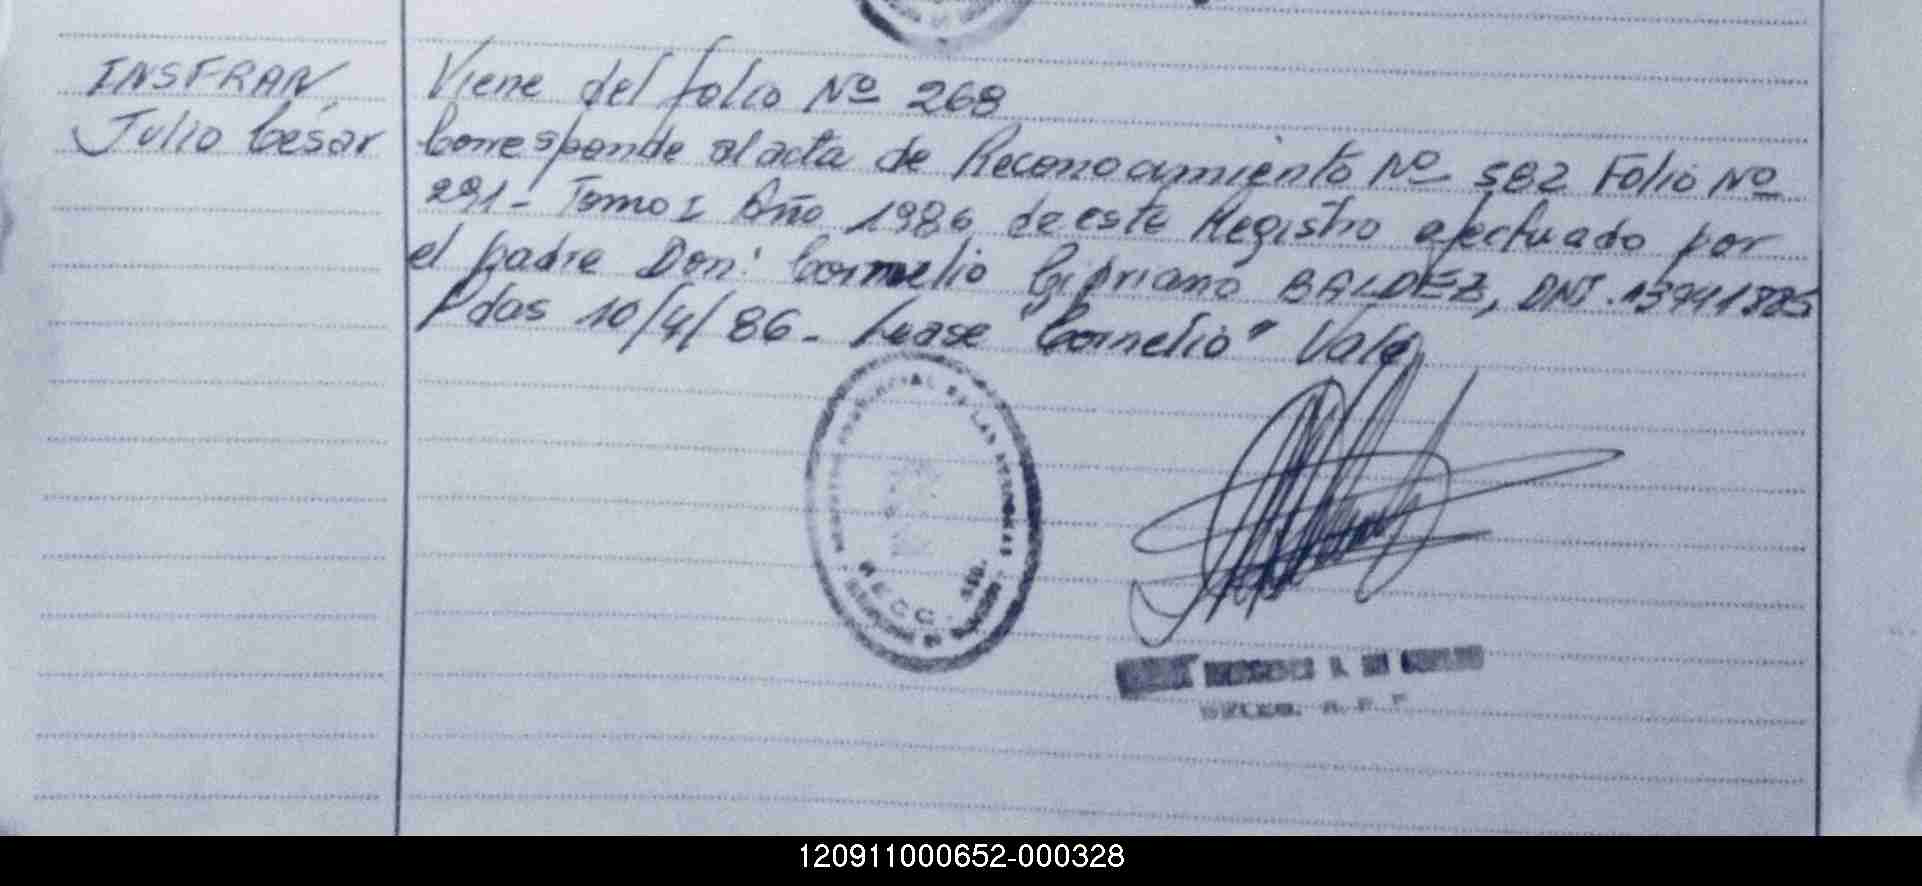 INSFRAN,
Julio César
Viene del folio Nº 268
Corresponde al acta de Reconocimiento Nº 582 Folio Nº
291- Tomo I Año 1986, de este Registro efectuado por
el padre Don: Cornnelio Cipriano BALDEZ, DNI. 13941885
Pdas 10/4/86- Lease "Cornelio" Vale
R.E.C.C.
120911000652-000328